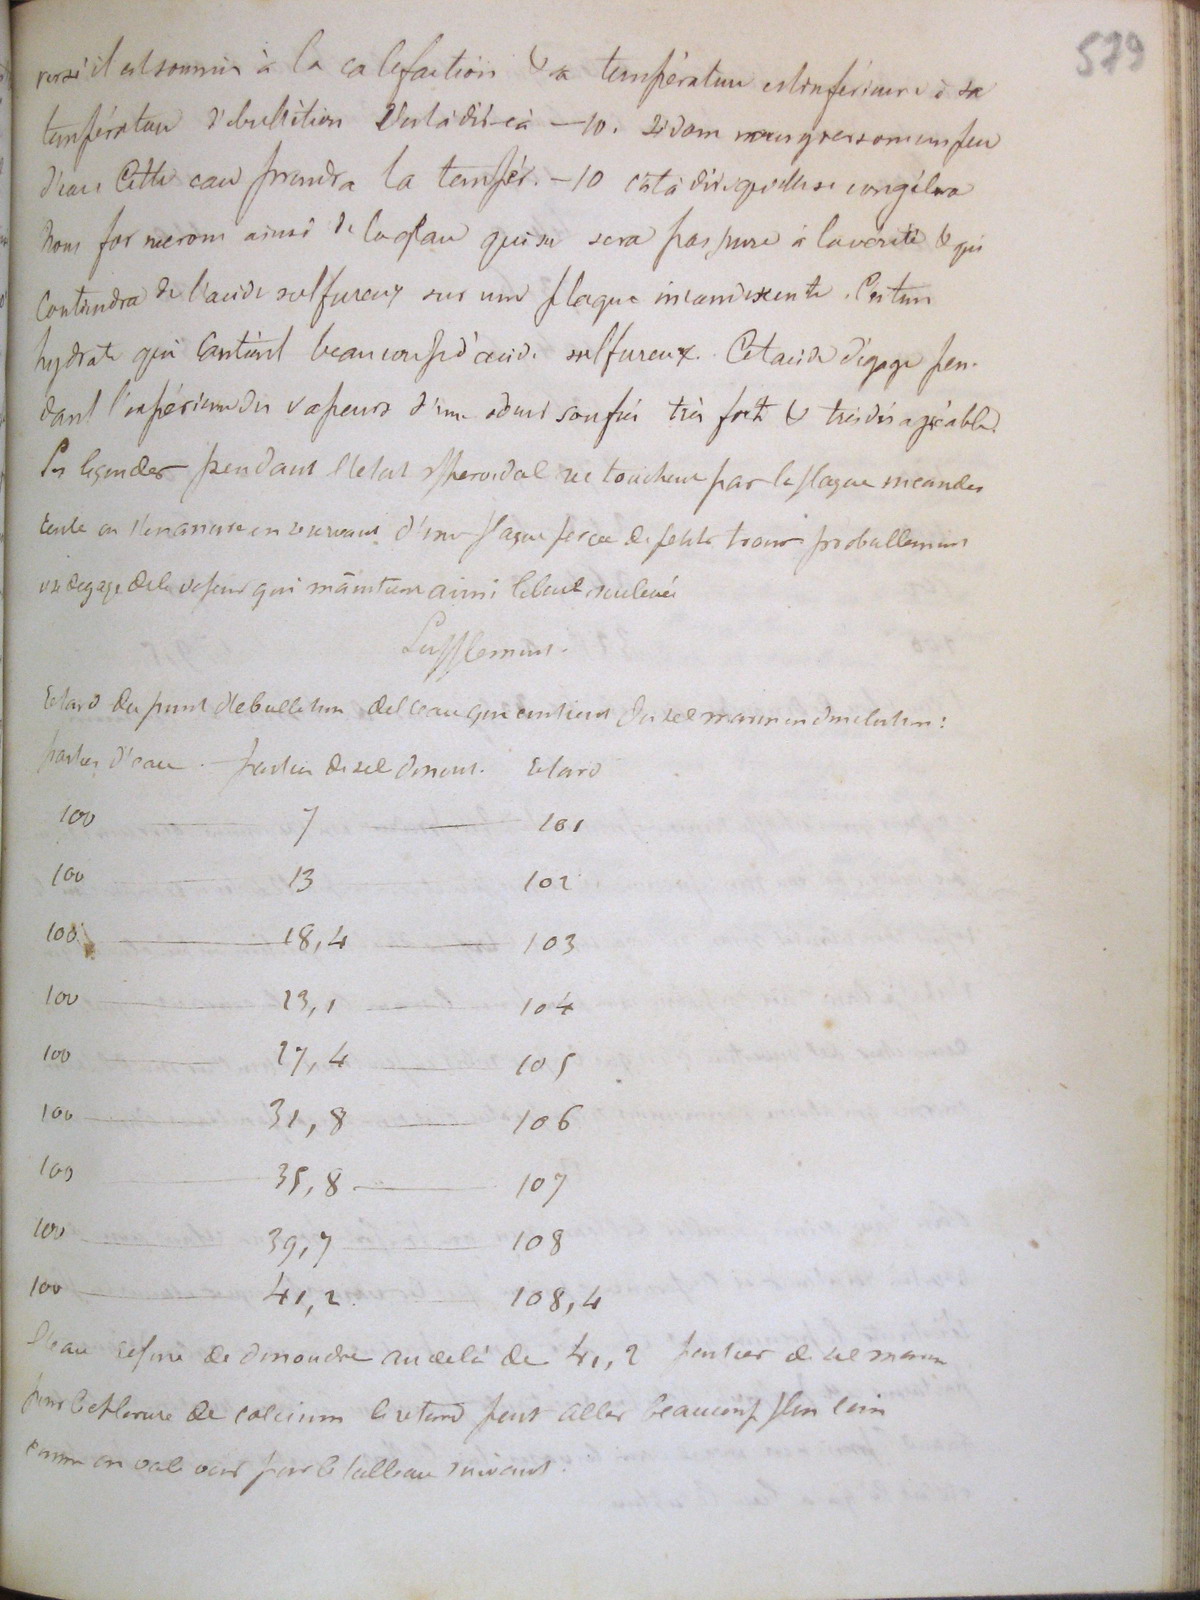 579
versé il est soumis à la calefaction & sa température est inférieure à sa
température d'ebullition C'est à dire à —10. Si dans nous y versons un peu
d'eau Cette eau prendra la tempér. —10 c'est à dire qu'elle se congèlera
Nous formerons ainsi de la glace qui ne sera pas pure à la verité & qui
Contiendra de l'acide sulfureux sur une plaque incandescente. C'est un
hydrate qui Contient beaucoup d'acide sulfureux. Cet acide dégage pen-
dant l'expérience des vapeurs d'une odeur soufrée très forte & tres désagréable.
Les liquides pendant l'etat spheroidal ne touchent pas la plaque incandes
cente on s'en assure en se servant d'une plaque percée de petits trous probablement
il se degage de la vapeur qui maintient ainsi le liquide soulevé
Supplement.
Retard du point d'ebullition de l'eau qui contient du sel marin en dissolution:
parties d'eau. — parties de sel dissous. Retard
100 — 7 — 101
100 — 13 — 102
100 — 18,4 — 103
100 — 23,1 — 104
100 — 27,4 — 105
100 — 31,8 — 106
100 — 35,8 — 107
100 — 39,7 — 108
100 — 41,2 — 108,4
L'eau refuse de dissoudre au delà de 41,2 parties de sel marin
pour le chlorure de calcium le retard peut aller beaucoup plus loin
comme on va le voir par le tableau suivant.